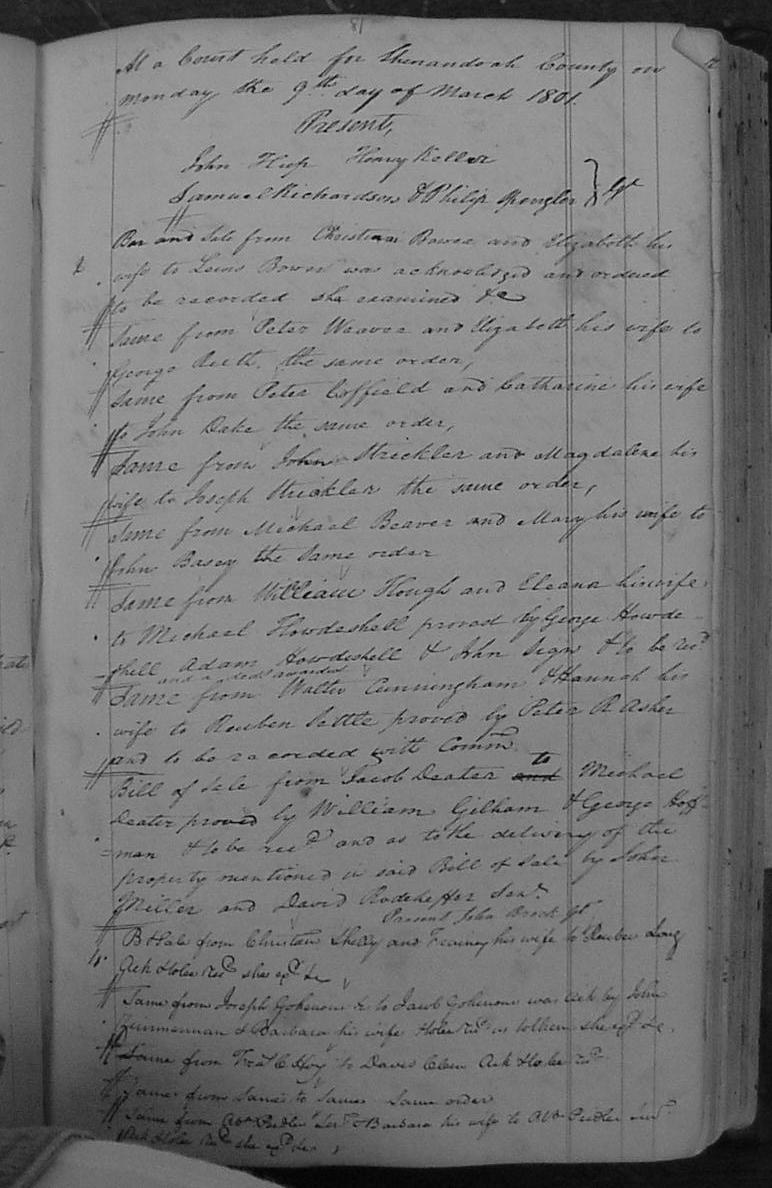 At a Court held for Shenandoah County on
monday the 9th day of March 1801.
Present,
John Hup Henry Keller
Samuel Richardson & Philip Spengler } Gt
Bar and Sale from Christian Bower and Elizabeth his
wife to Lewis Bower was acknowledged and ordered
to be recorded she examined &c
Same from Peter Weaver and Elizabeth his wife to
George the same order,
Same from Peter Coffield and Catharine his wife
to John Dake the same order,
Same from John Strickler and Magdalene his
wife to Joseph Strickler the same order,
Same from Michael Beaver and Mary his wife to
John Basey the same order
Same from William Hough and Eleanor his wife
to Michael Howdeshell proved by George Howde
shell Adam Howdeshell & John & to be recd
and a dedi awarded
Same from Walter Cunningham & Hannah his
wife to Reuben Settle proved by Peter R Asher
and to be recorded with Commn
Bill of Sale from Jacob Deater and to Michael
Deater proved by William Gilham & George Hoff
=man & to be recd and as to the delivery of the
property mentioned in said Bill of Sale by John
Miller and David Rodeheffer Senr.
Present John Brock Gt
B & Sale from Christian Shelly and his wife to Reuben Long
Ack & to be recd she exd &c
Same from Joseph Gohenour &c to Jacob Gohenour was ack by John
Zimmerman & Barbara his wife & to be recd as to them she exd &c.
Same from to Ack & to be recd
Same from Same to Same Same order
Same from Abm Senr & Barbara his wife to Abm Junr
Ack & to be recd she exd &c